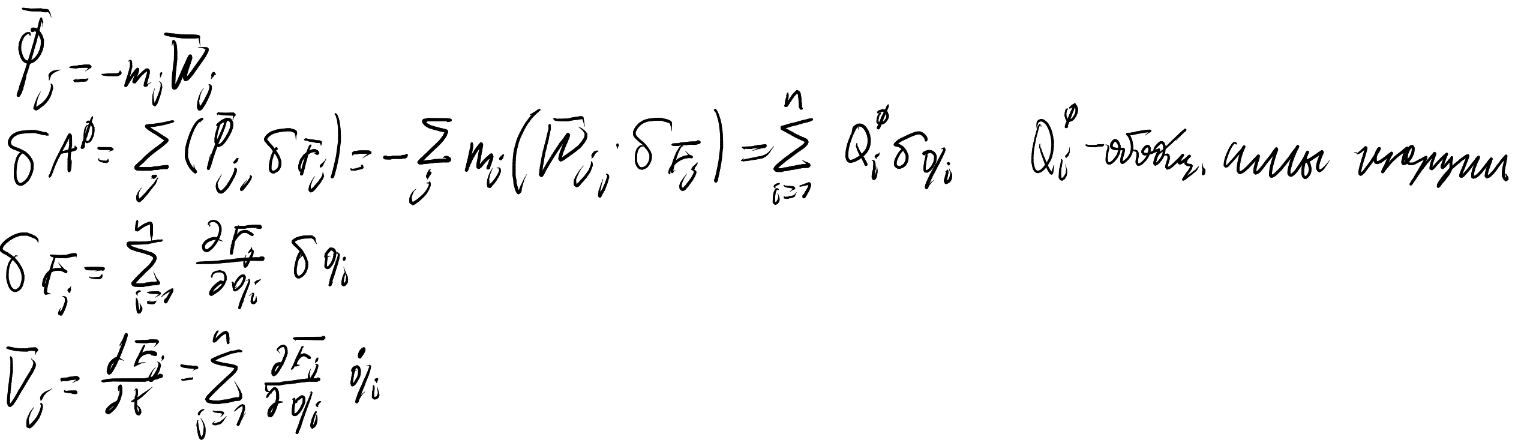 Φ̄ⱼ = −mⱼW̄ⱼ
δA^Φ = ∑ⱼ(Φ̄ⱼ, δr̄ⱼ) = −∑ⱼ mⱼ(W̄ⱼ, δr̄ⱼ) = ∑ⁿᵢ₌₁ Qᵢ^Φ δqᵢ   Qᵢ^Φ – обобщ. силы инерции
δr̄ⱼ = ∑ⁿᵢ₌₁ ∂r̄ⱼ/∂qᵢ δqᵢ
V̄ⱼ = dr̄ⱼ/dt = ∑ⁿᵢ₌₁ ∂r̄ⱼ/∂qᵢ q̇ᵢ